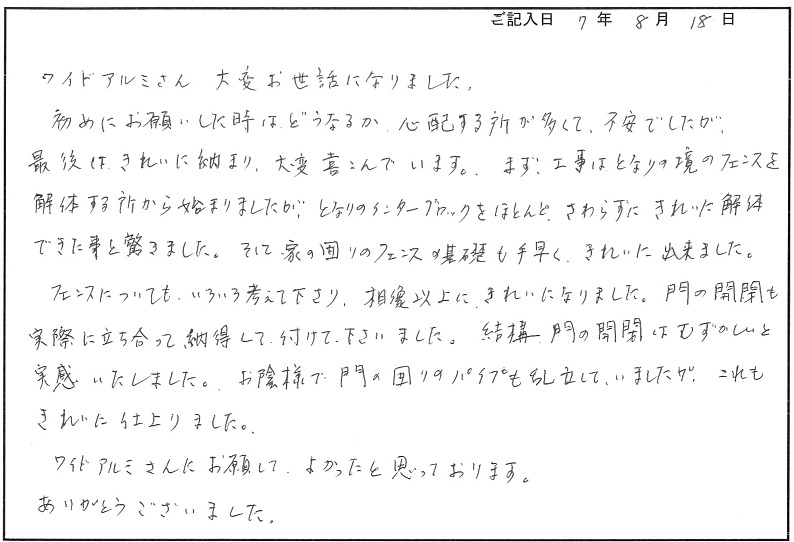 ご記入日 7 年 8 月 18 日
ワイドアルミさん 大変お世話になりました。
初めにお願いした時は、どうなるか、心配する所が多くて、不安でしたが、
最後は、きれいに納まり、大変喜こんでいます。まず、工事はとなりの境のフェンスを
解体する所から始まりましたが、となりのインターブロックをほとんど、さわらずに きれいに解体
できた事と驚きました。そして家の囲りのフェンスの基礎も手早く、きれいに出来ました。
フェンスについても、いろいろ考えて下さり、想像以上に、きれいになりました。門の開閉も
実際に立ち合って納得して、付けて、下さいました。結構、門の開閉はむずかしいと
実感いたしました。お陰様で門の囲りのパイプも乱立して、いましたが、これも
きれいに仕上りました。
ワイドアルミさんにお願して、よかったと思っております。
ありがとうございました。